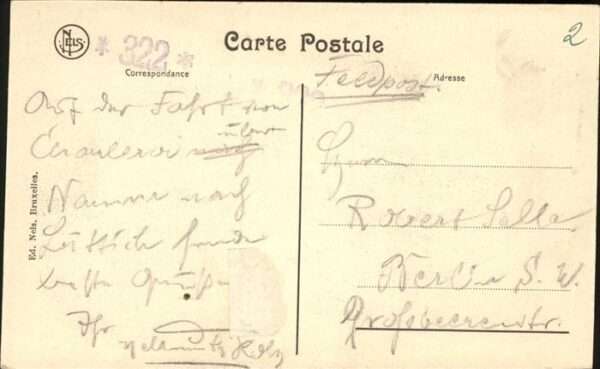 NELS
* 322 *
Carte Postale
2
Correspondance
Adresse
Feldpost.
Auf der Fahrt von
Charleroi nach über
Namur nach
Lüttich sende
beste Grüße
Ihr
Herrn
Robert Salle
Berlin S. W.
Großbeerenstr.
Ed. Nels, Bruxelles.